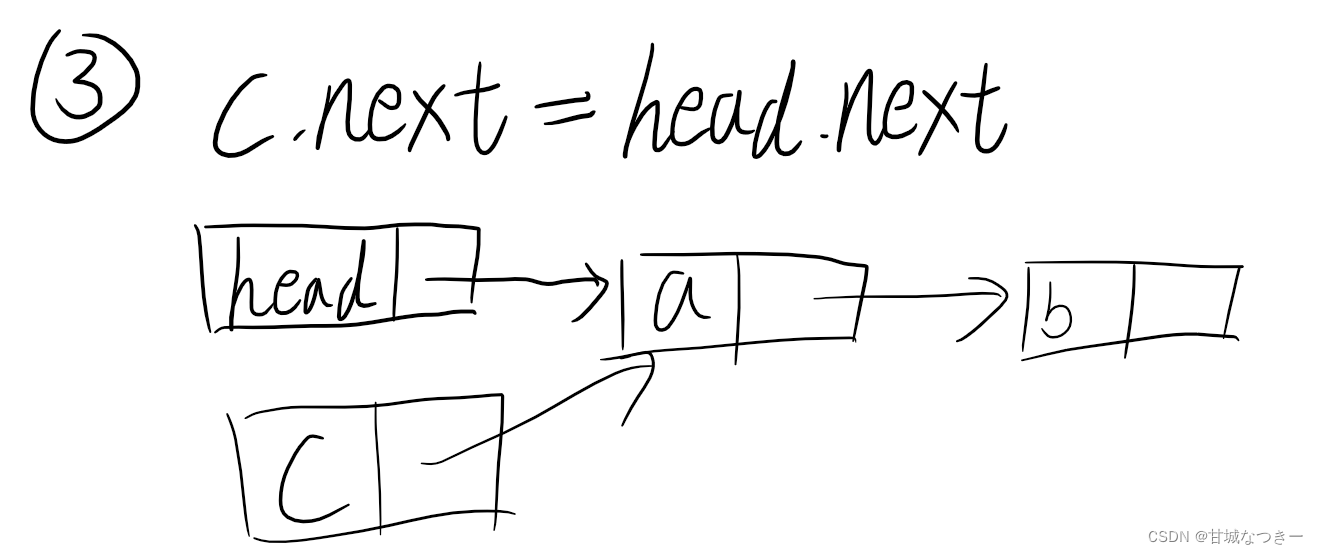 ③ c.next = head.next
head a b
c
CSDN @甘城なつきー